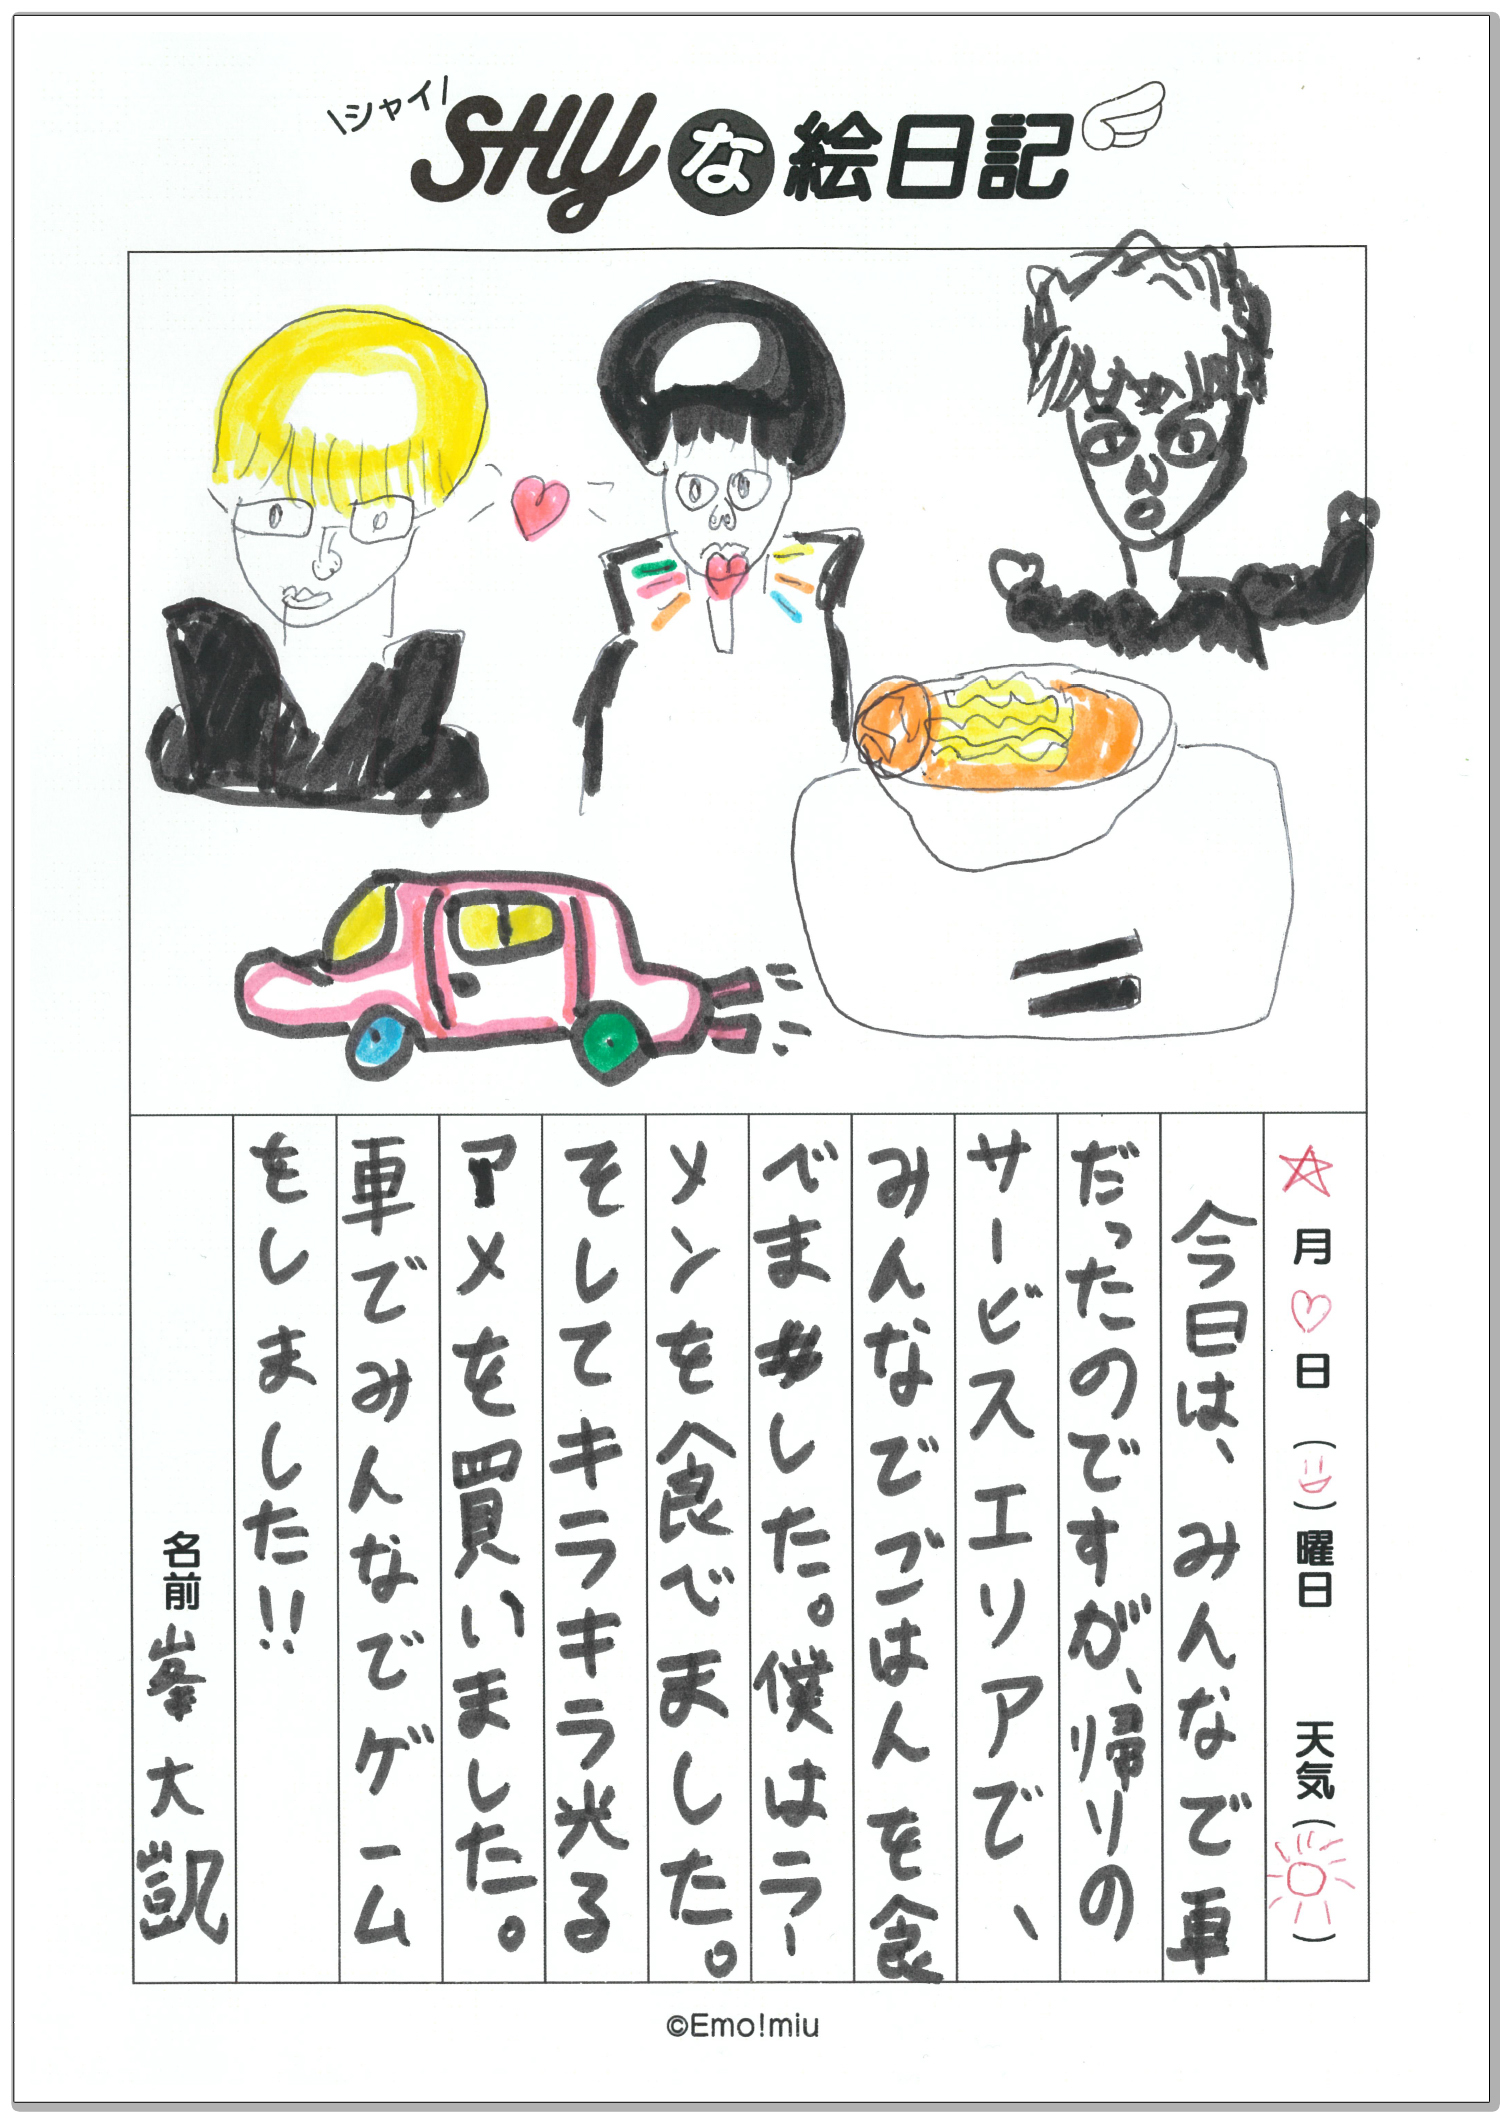 \シャイ/
SHYな絵日記
月 日 ( )曜日 天気( )
今日は、みんなで車
だったのですが、帰りの
サービスエリアで、
みんなでごはんを食
べました。僕はラー
メンを食べました。
そしてキラキラ光る
アメを買いました。
車でみんなでゲーム
をしました!!
名前 峯 大凱
©Emo!miu